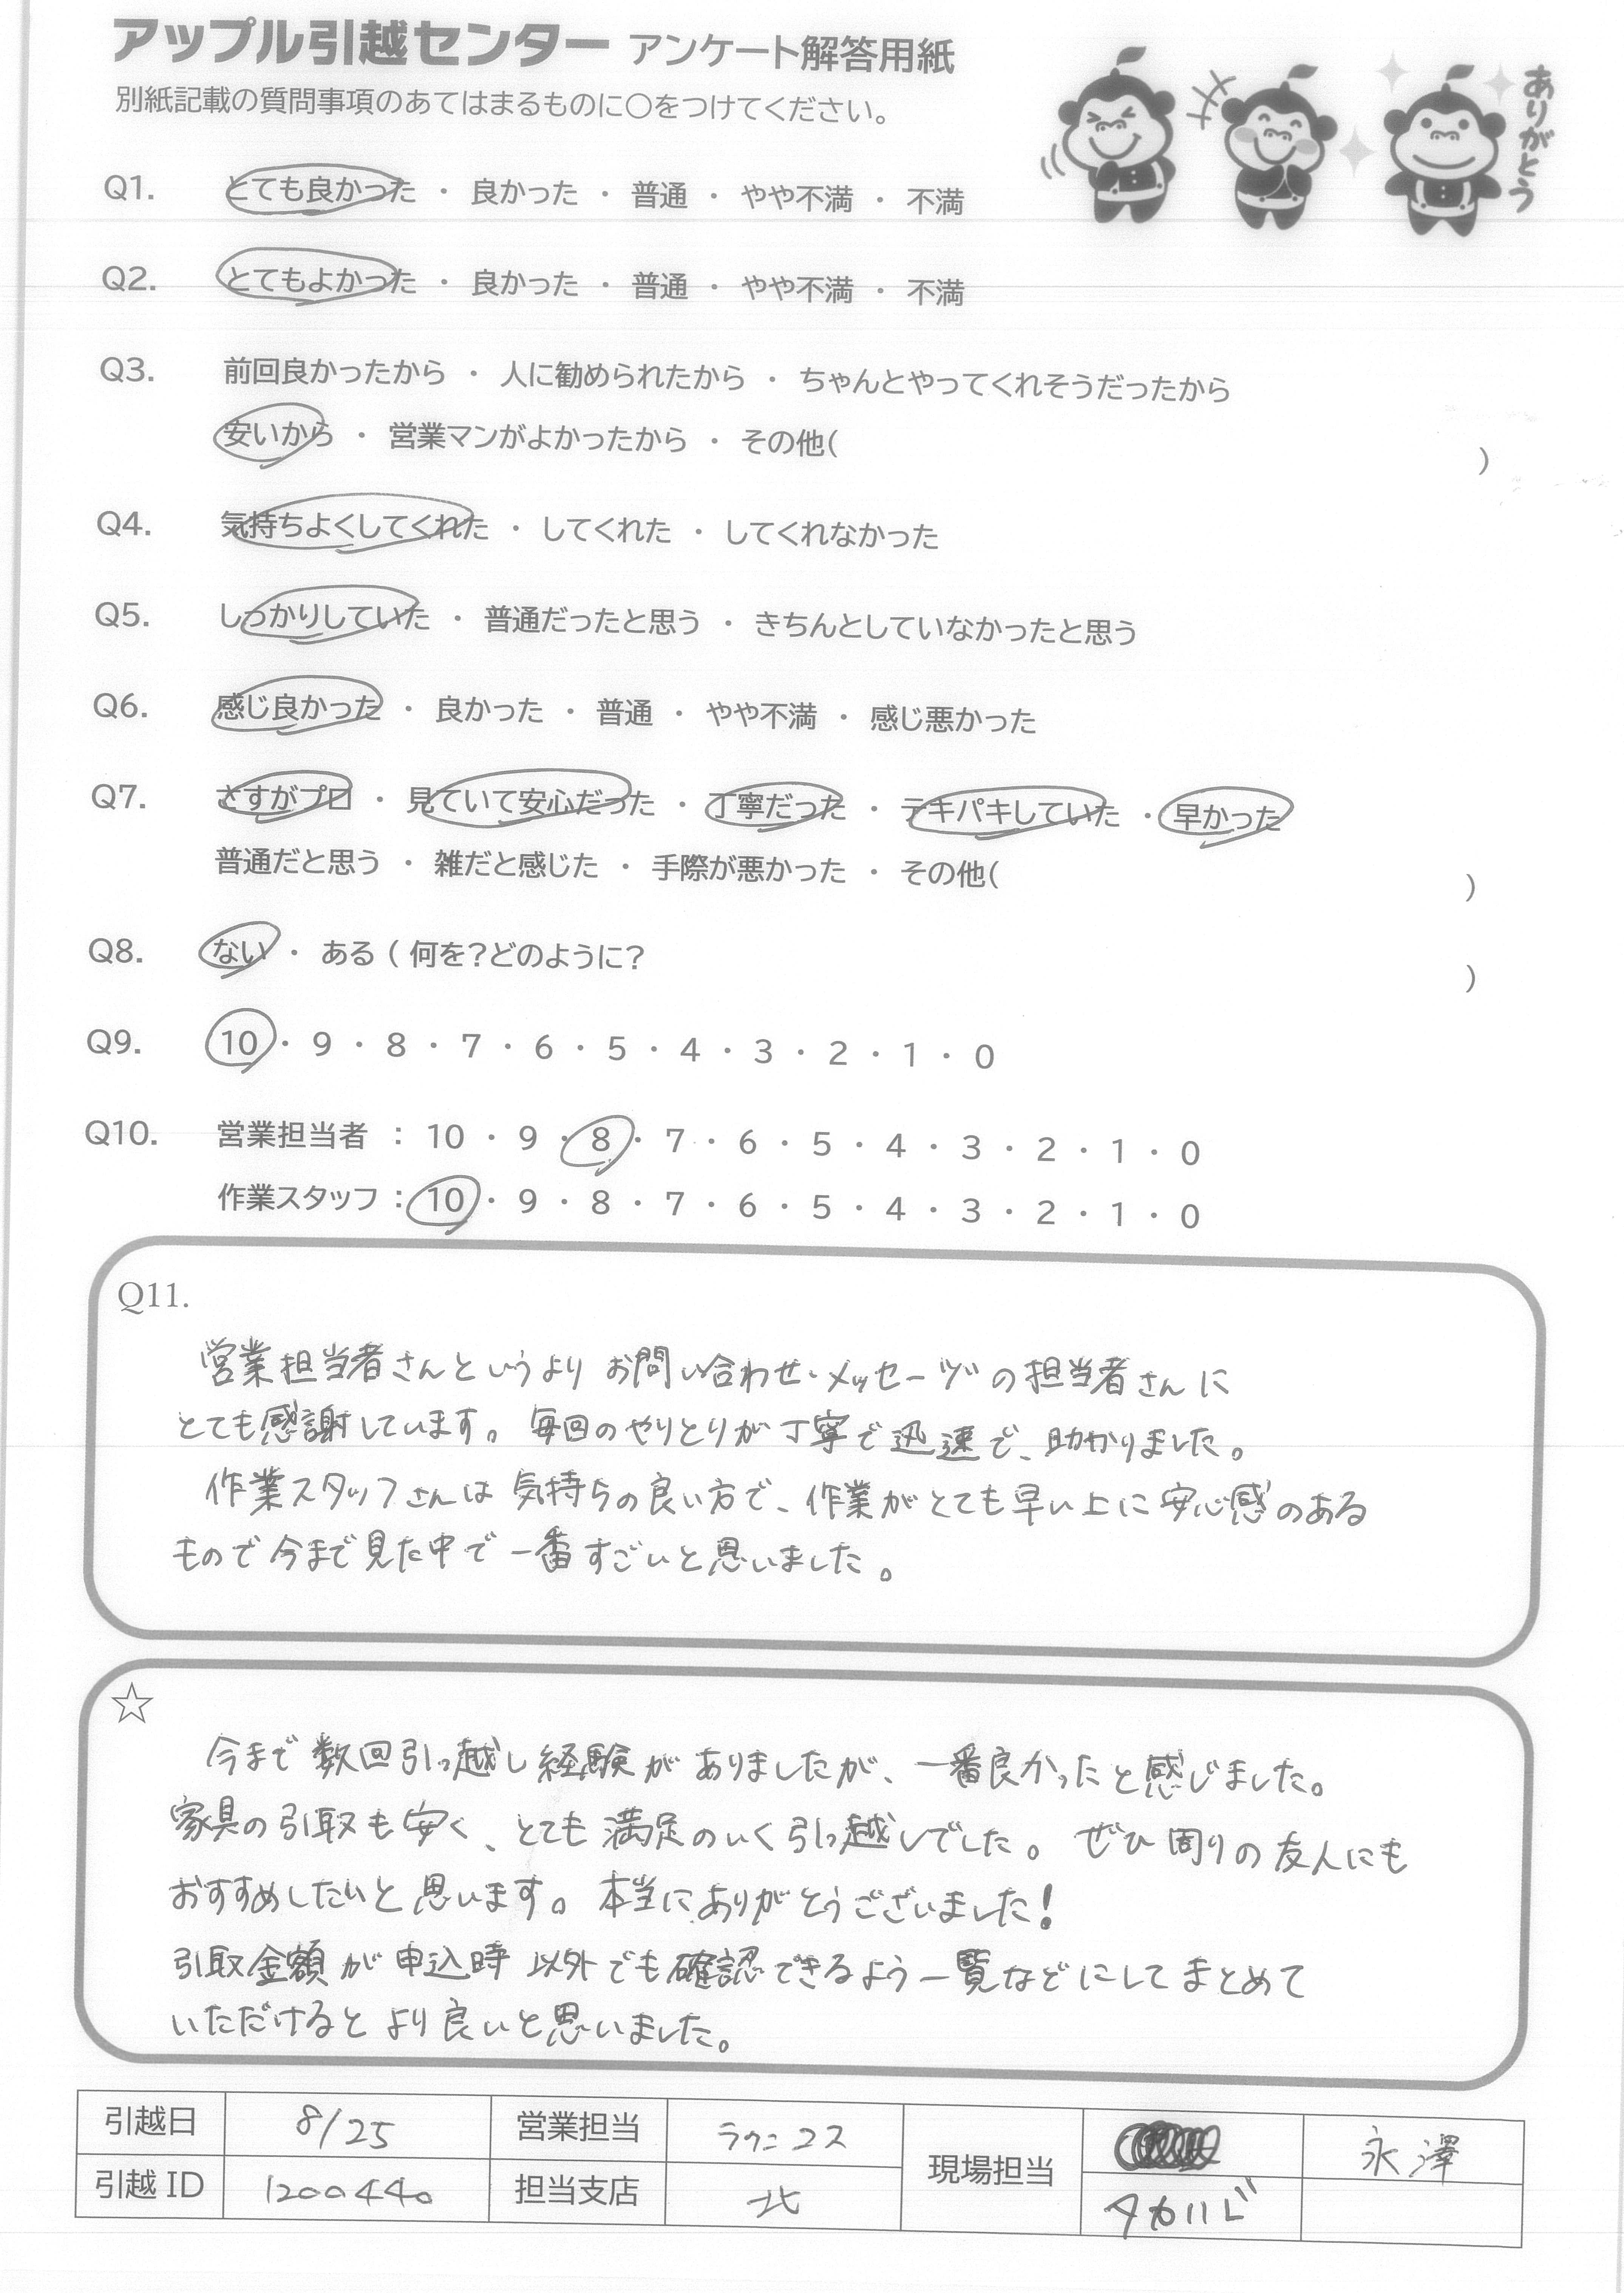 アップル引越センター アンケート解答用紙
別紙記載の質問事項のあてはまるものに〇をつけてください。
ありがとう
Q1. とても良かった ・ 良かった ・ 普通 ・ やや不満 ・ 不満
Q2. とてもよかった ・ 良かった ・ 普通 ・ やや不満 ・ 不満
Q3. 前回良かったから ・ 人に勧められたから ・ ちゃんとやってくれそうだったから
安いから ・ 営業マンがよかったから ・ その他( )
Q4. 気持ちよくしてくれた ・ してくれた ・ してくれなかった
Q5. しっかりしていた ・ 普通だったと思う ・ きちんとしていなかったと思う
Q6. 感じ良かった ・ 良かった ・ 普通 ・ やや不満 ・ 感じ悪かった
Q7. さすがプロ ・ 見ていて安心だった ・ 丁寧だった ・ テキパキしていた ・ 早かった
普通だと思う ・ 雑だと感じた ・ 手際が悪かった ・ その他( )
Q8. ない ・ ある ( 何を?どのように? )
Q9. 10 ・ 9 ・ 8 ・ 7 ・ 6 ・ 5 ・ 4 ・ 3 ・ 2 ・ 1 ・ 0
Q10. 営業担当者 : 10 ・ 9 ・ 8 ・ 7 ・ 6 ・ 5 ・ 4 ・ 3 ・ 2 ・ 1 ・ 0
作業スタッフ : 10 ・ 9 ・ 8 ・ 7 ・ 6 ・ 5 ・ 4 ・ 3 ・ 2 ・ 1 ・ 0
Q11.
営業担当者さんというより お問い合わせ・メッセージの担当者さんに
とても感謝しています。毎回のやりとりが丁寧で迅速で、助かりました。
作業スタッフさんは気持ちの良い方で、作業がとても早い上に安心感のある
もので今まで見た中で一番すごいと思いました。
☆
今まで数回引っ越し経験がありましたが、一番良かったと感じました。
家具の引取も安く、とても満足のいく引っ越しでした。ぜひ周りの友人にも
おすすめしたいと思います。本当にありがとうございました!
引取金額が申込時以外でも確認できるよう一覧などにしてまとめて
いただけるとより良いと思いました。
引越日 8/25 営業担当 ラクニコス 現場担当 永澤
引越ID 1200440 担当支店 北 タカハシ